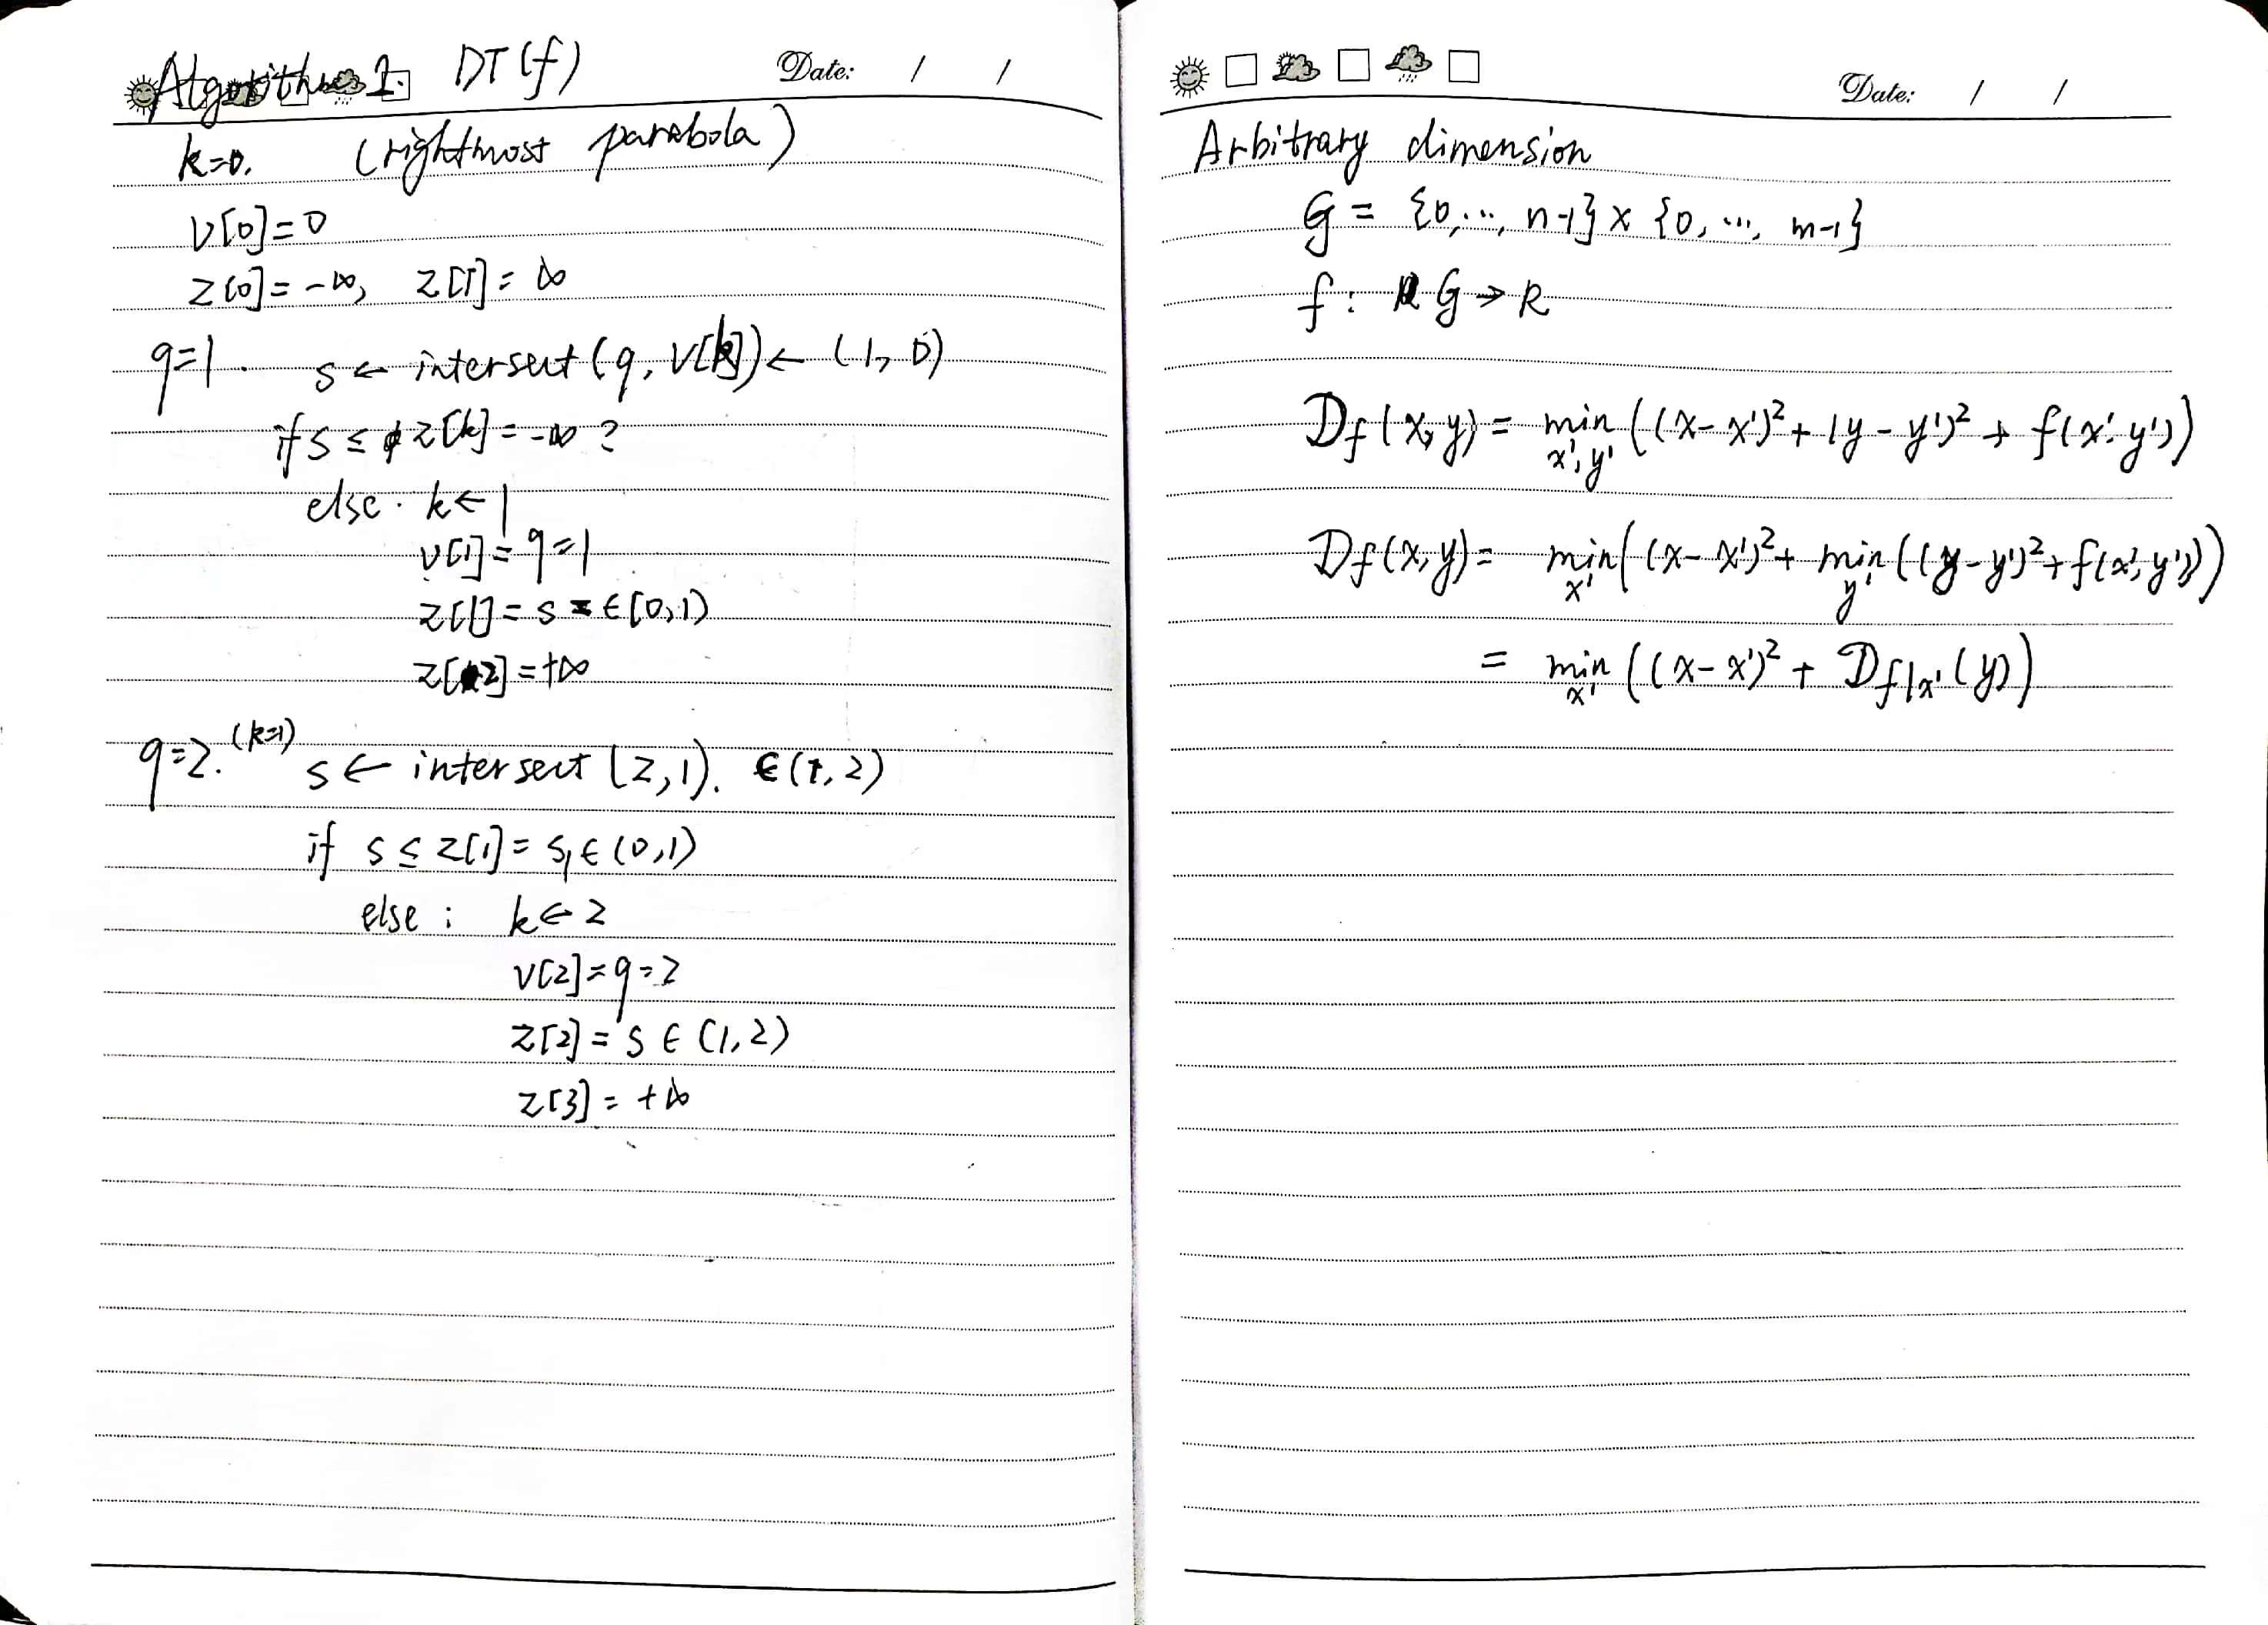 Algorithm 1. DT(f)
Date: / /
k=0. (rightmost parabola)
v[0]=0
z[0]=-∞, z[1]=∞
q=1. s ← intersect(q, v[k]) ← (1, 0)
if s ≤ z[k] = -∞ ?
else. k ← 1
v[1] = q = 1
z[1] = s ∈ (0,1)
z[2] = +∞
q=2. (k=1) s ← intersect (2,1). ∈ (1, 2)
if s ≤ z[1] = s, ∈ (0,1)
else : k ← 2
v[2] = q = 2
z[2] = s ∈ (1,2)
z[3] = +∞
Date: / /
Arbitrary dimension
G = {0, ..., n-1} × {0, ..., m-1}
f : G → R
Df(x,y) = min x',y' ((x-x')² + (y-y')² + f(x',y'))
Df(x,y) = min x' ((x-x')² + min y' ((y-y')² + f(x',y')))
= min x' ((x-x')² + Df|x'(y))